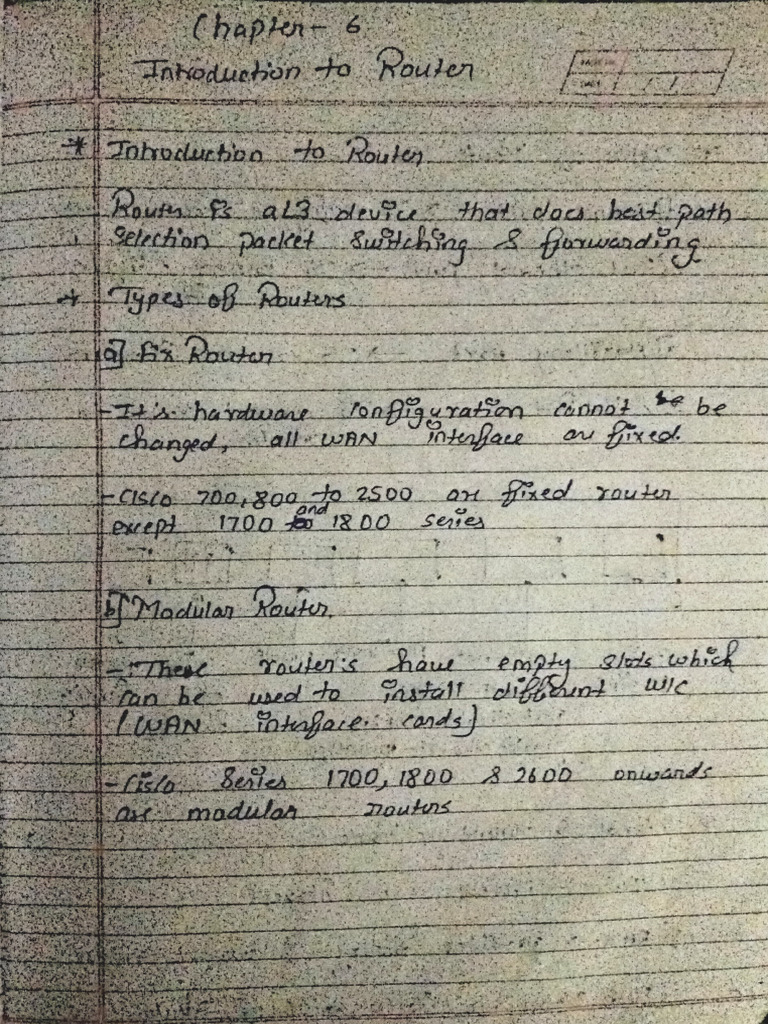 Chapter - 6
Introduction to Router
* Introduction to Router
Router is a L3 device that does best path
selection packet switching & forwarding
* Types of Routers
a] Fix Router
- It's hardware configuration cannot be be
changed, all WAN interface are fixed.
- Cisco 700, 800 to 2500 are fixed router
except 1700 and 1800 series
b] Modular Router
- These router's have empty slots which
can be used to install different WIC
(WAN interface cards)
- Cisco Series 1700, 1800 & 2600 onwards
are modular routers